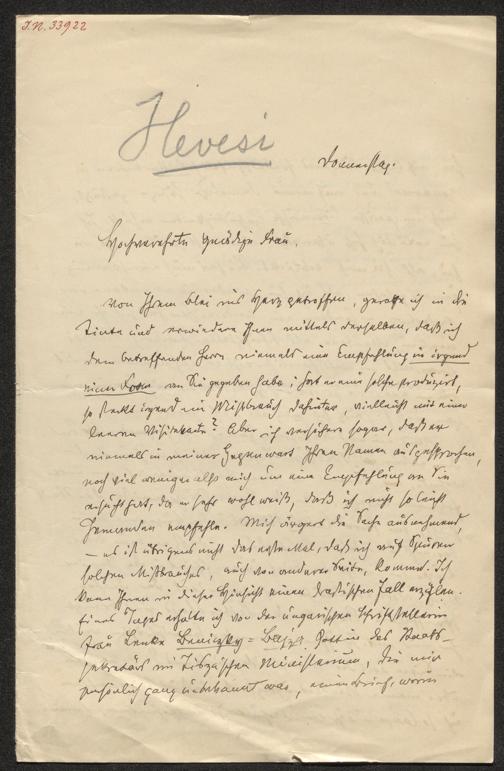 I.N. 33922
Hevesi
Donnerstag.
Hochverehrte gnädige Frau.
Von Ihrem Blei ins Herz getroffen, gerathe ich in die
Tinte und erwiedere Ihnen mittels derselben, daß ich
dem betreffenden Herrn niemals eine Empfehlung in irgend
einer Form an Sie gegeben habe; hat er eine solche produzirt,
so steckt irgend ein Mißbrauch dahinter, vielleicht mit einer
leeren Visitkarte? Aber ich versichere sogar, daß er
niemals in meiner Gegenwart Ihren Namen ausgesprochen,
noch viel weniger also mich um eine Empfehlung an Sie
ersucht hat, da er sehr wohl weiß, daß ich nicht so leicht
Jemanden empfehle. Mich ärgert die Sache ausnehmend,
– es ist übrigens nicht das erste Mal, daß ich auf Spuren
solchen Mißbrauches, auch von anderer Seite, komme. Ich
kann Ihnen in dieser Hinsicht einen drastischen Fall erzälen.
Eines Tages erhalte ich von der ungarischen Schriftstellerin
Frau Lenke Beniczky-Bajza, Gattin des Staats-
sekretärs im Tiszaschen Ministerium, die mir
persönlich ganz unbekannt war, einen Brief, worin